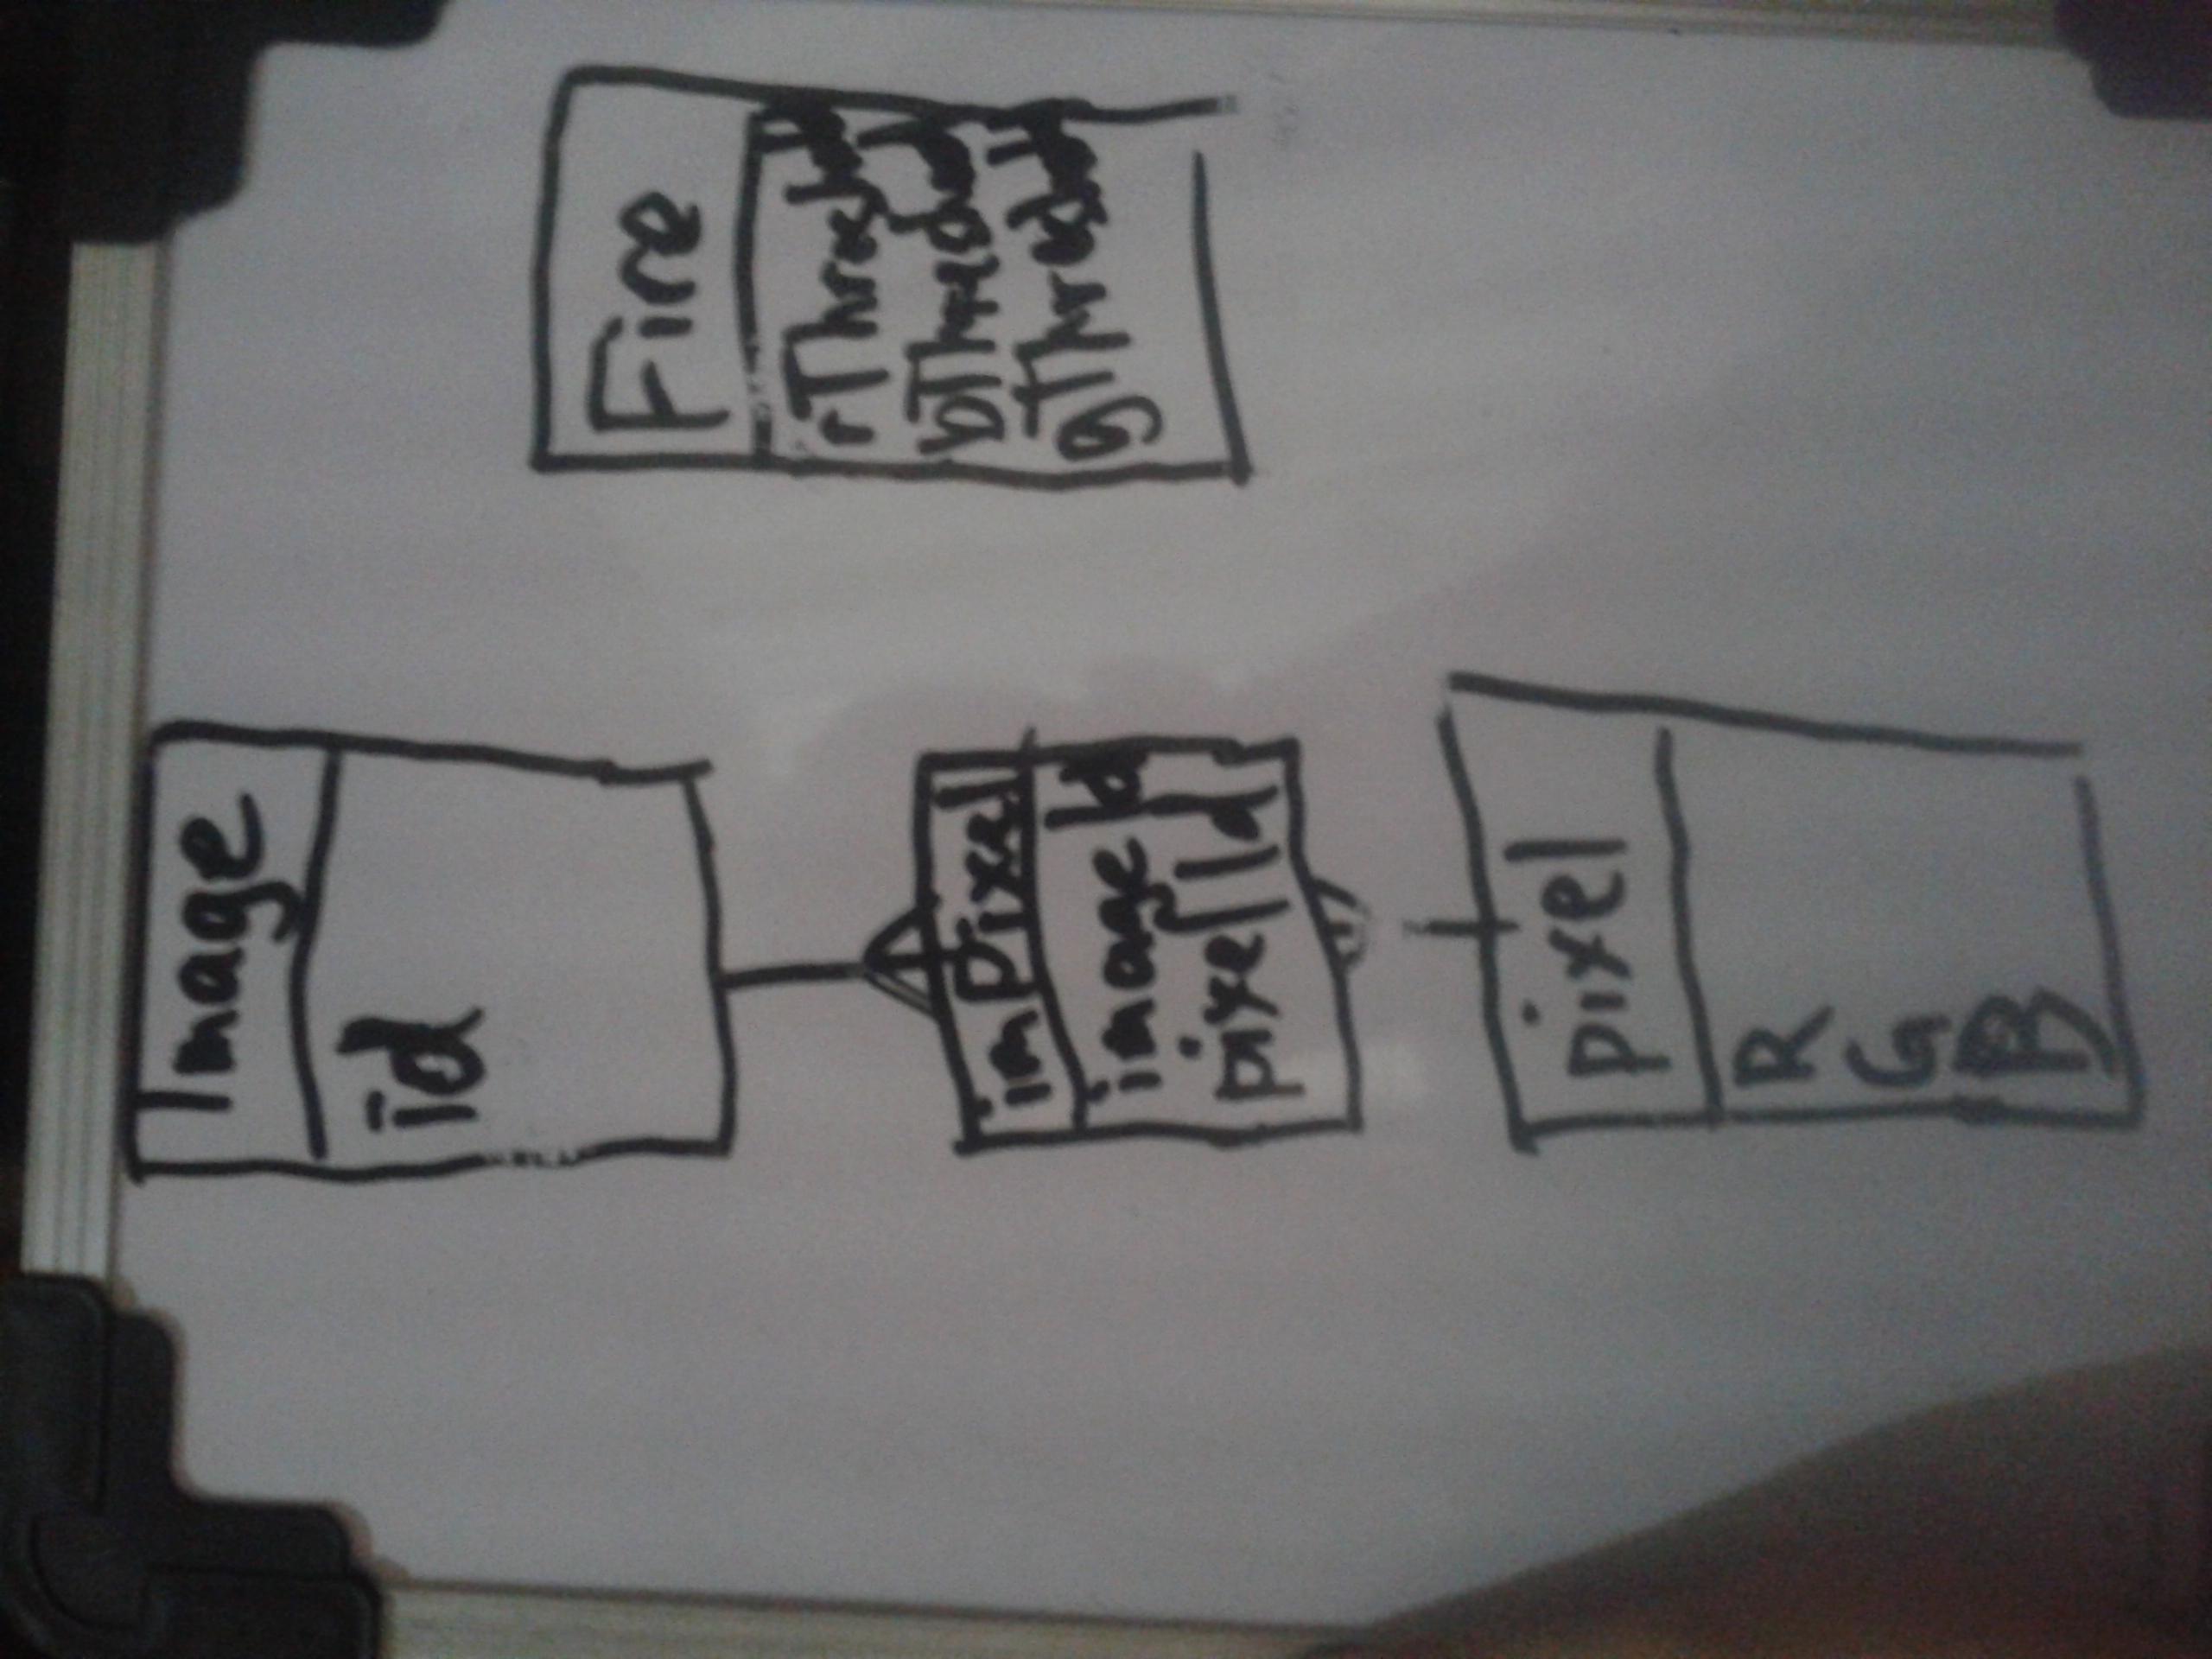 Image
id
imPixel
imageId
pixelId
pixel
R
G
B
Fire
rThreshold
bThreshold
gThreshold